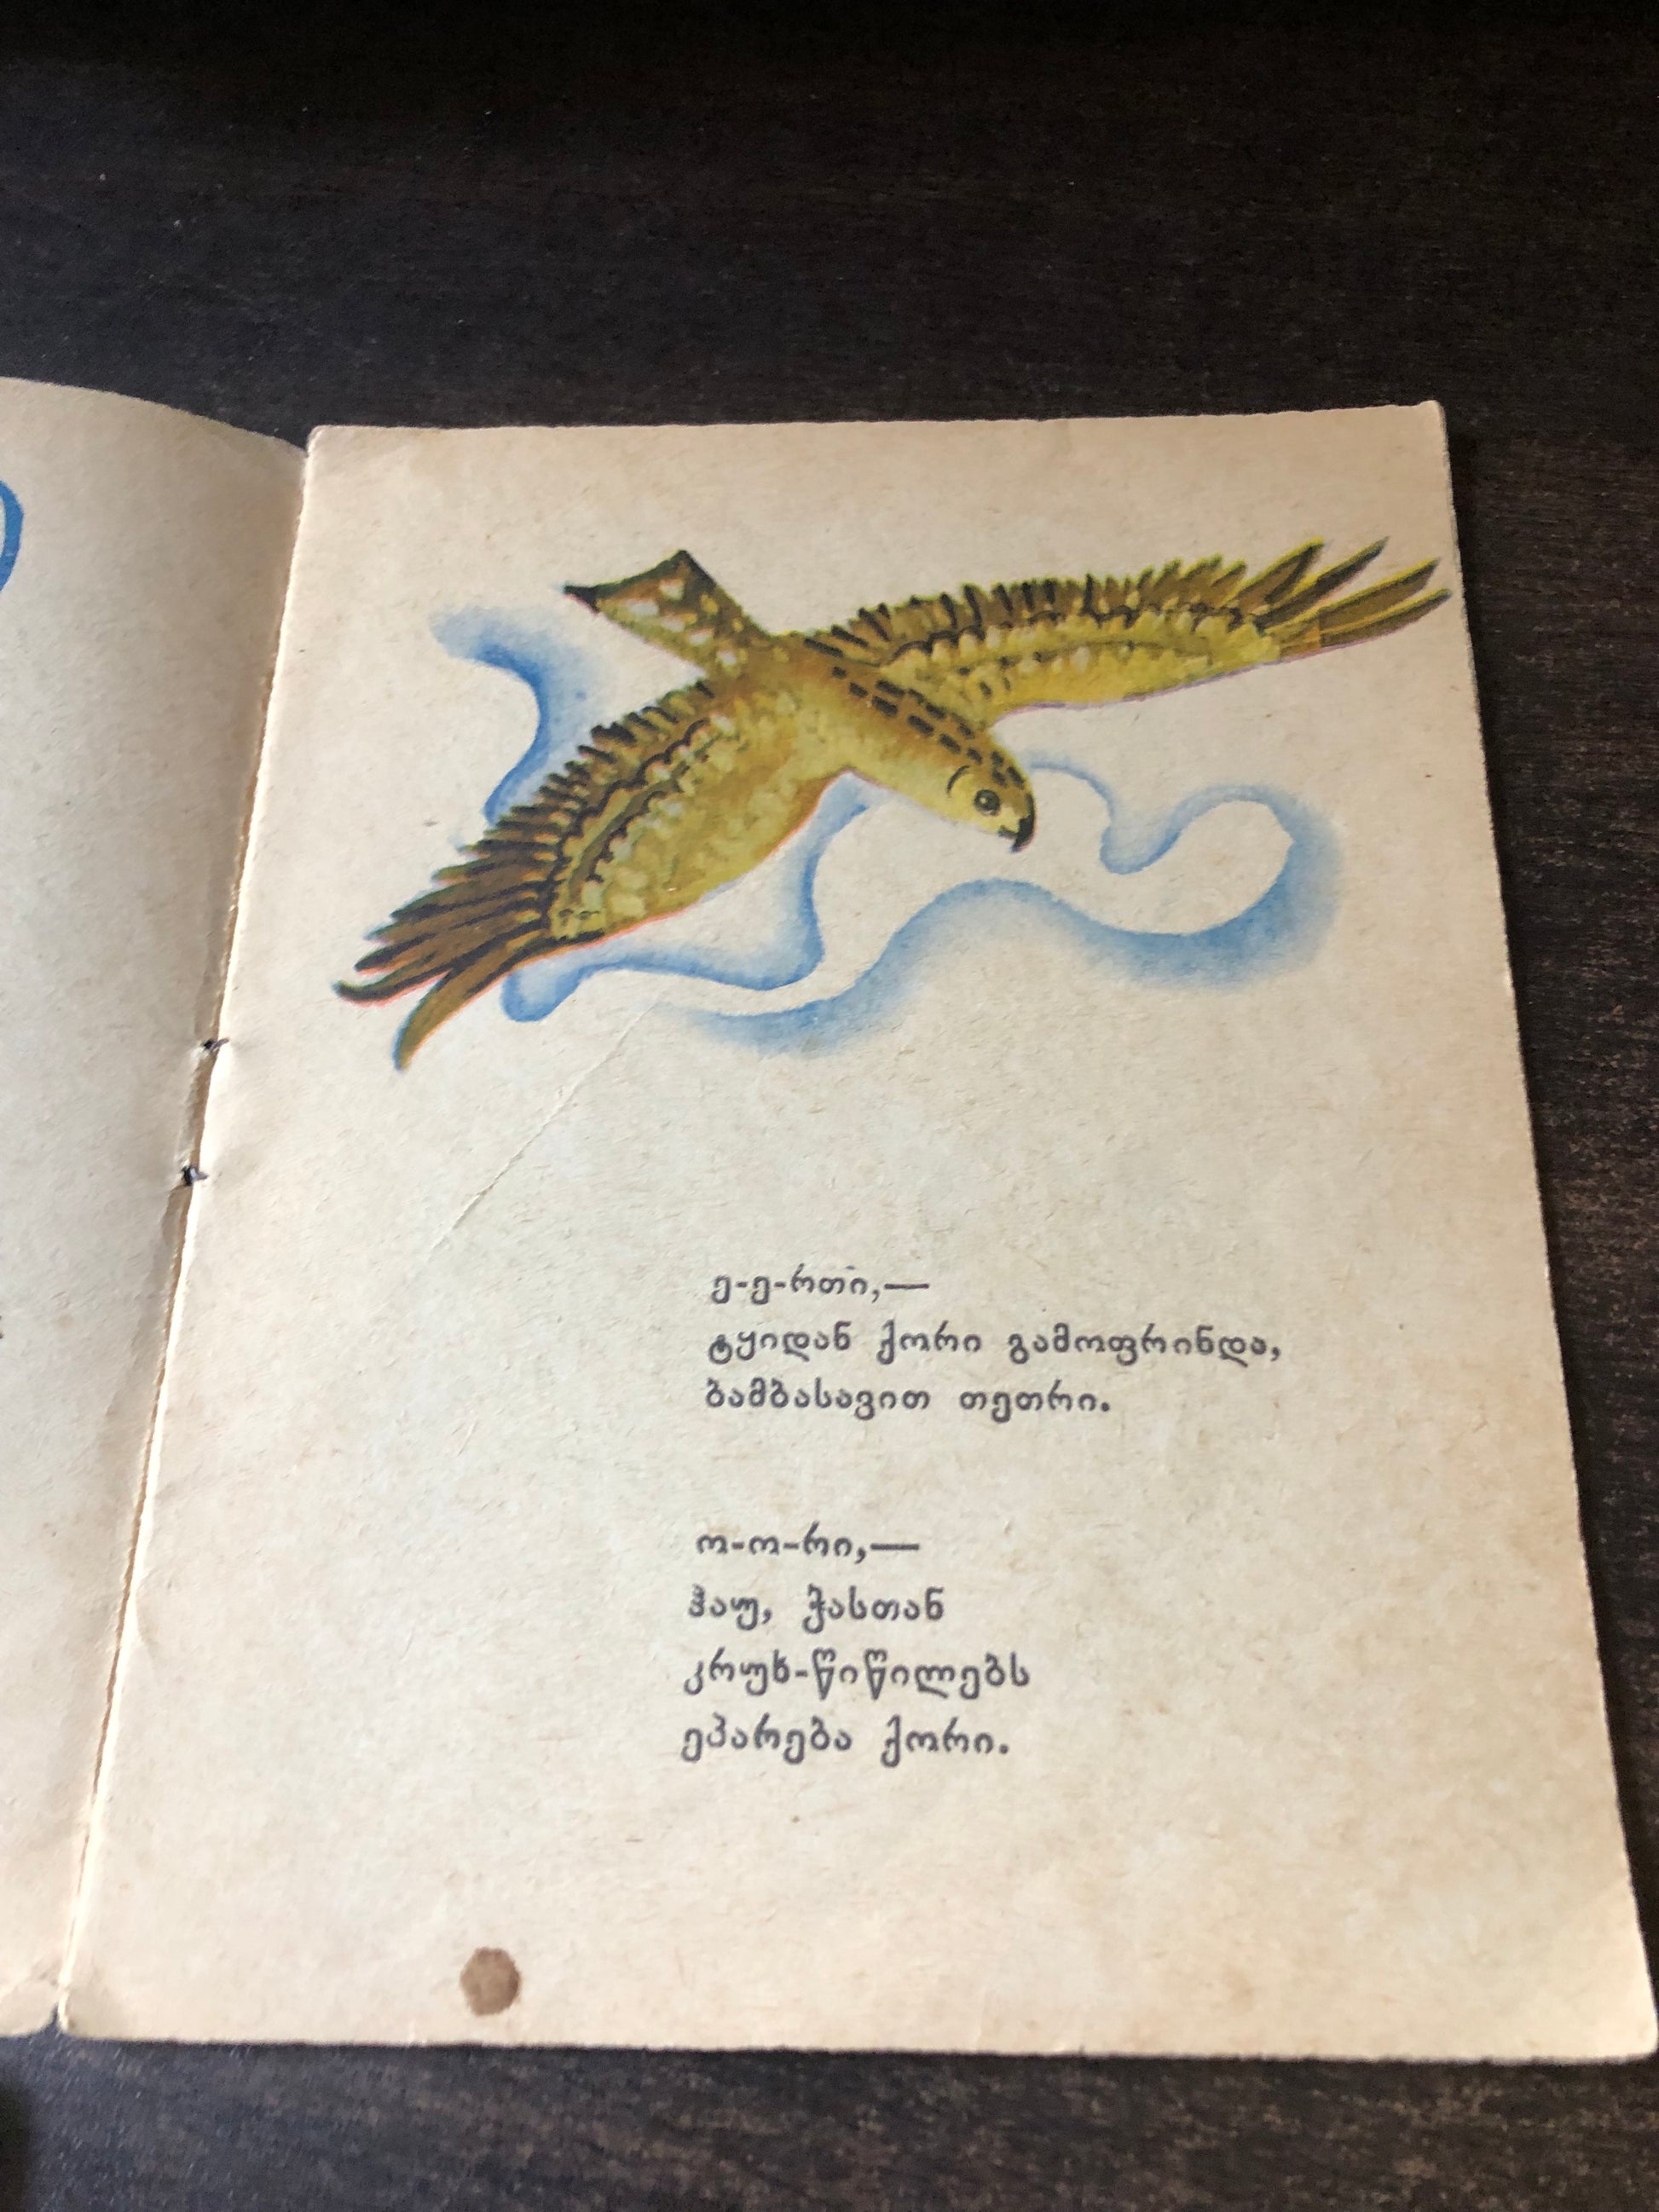 ე-ე-რთი,—
ტყიდან ქორი გამოფრინდა,
ბამბასავით თეთრი.
ო-ო-რი,—
ჰაუ, ჭასთან
კრუხ-წიწილებს
ეპარება ქორი.